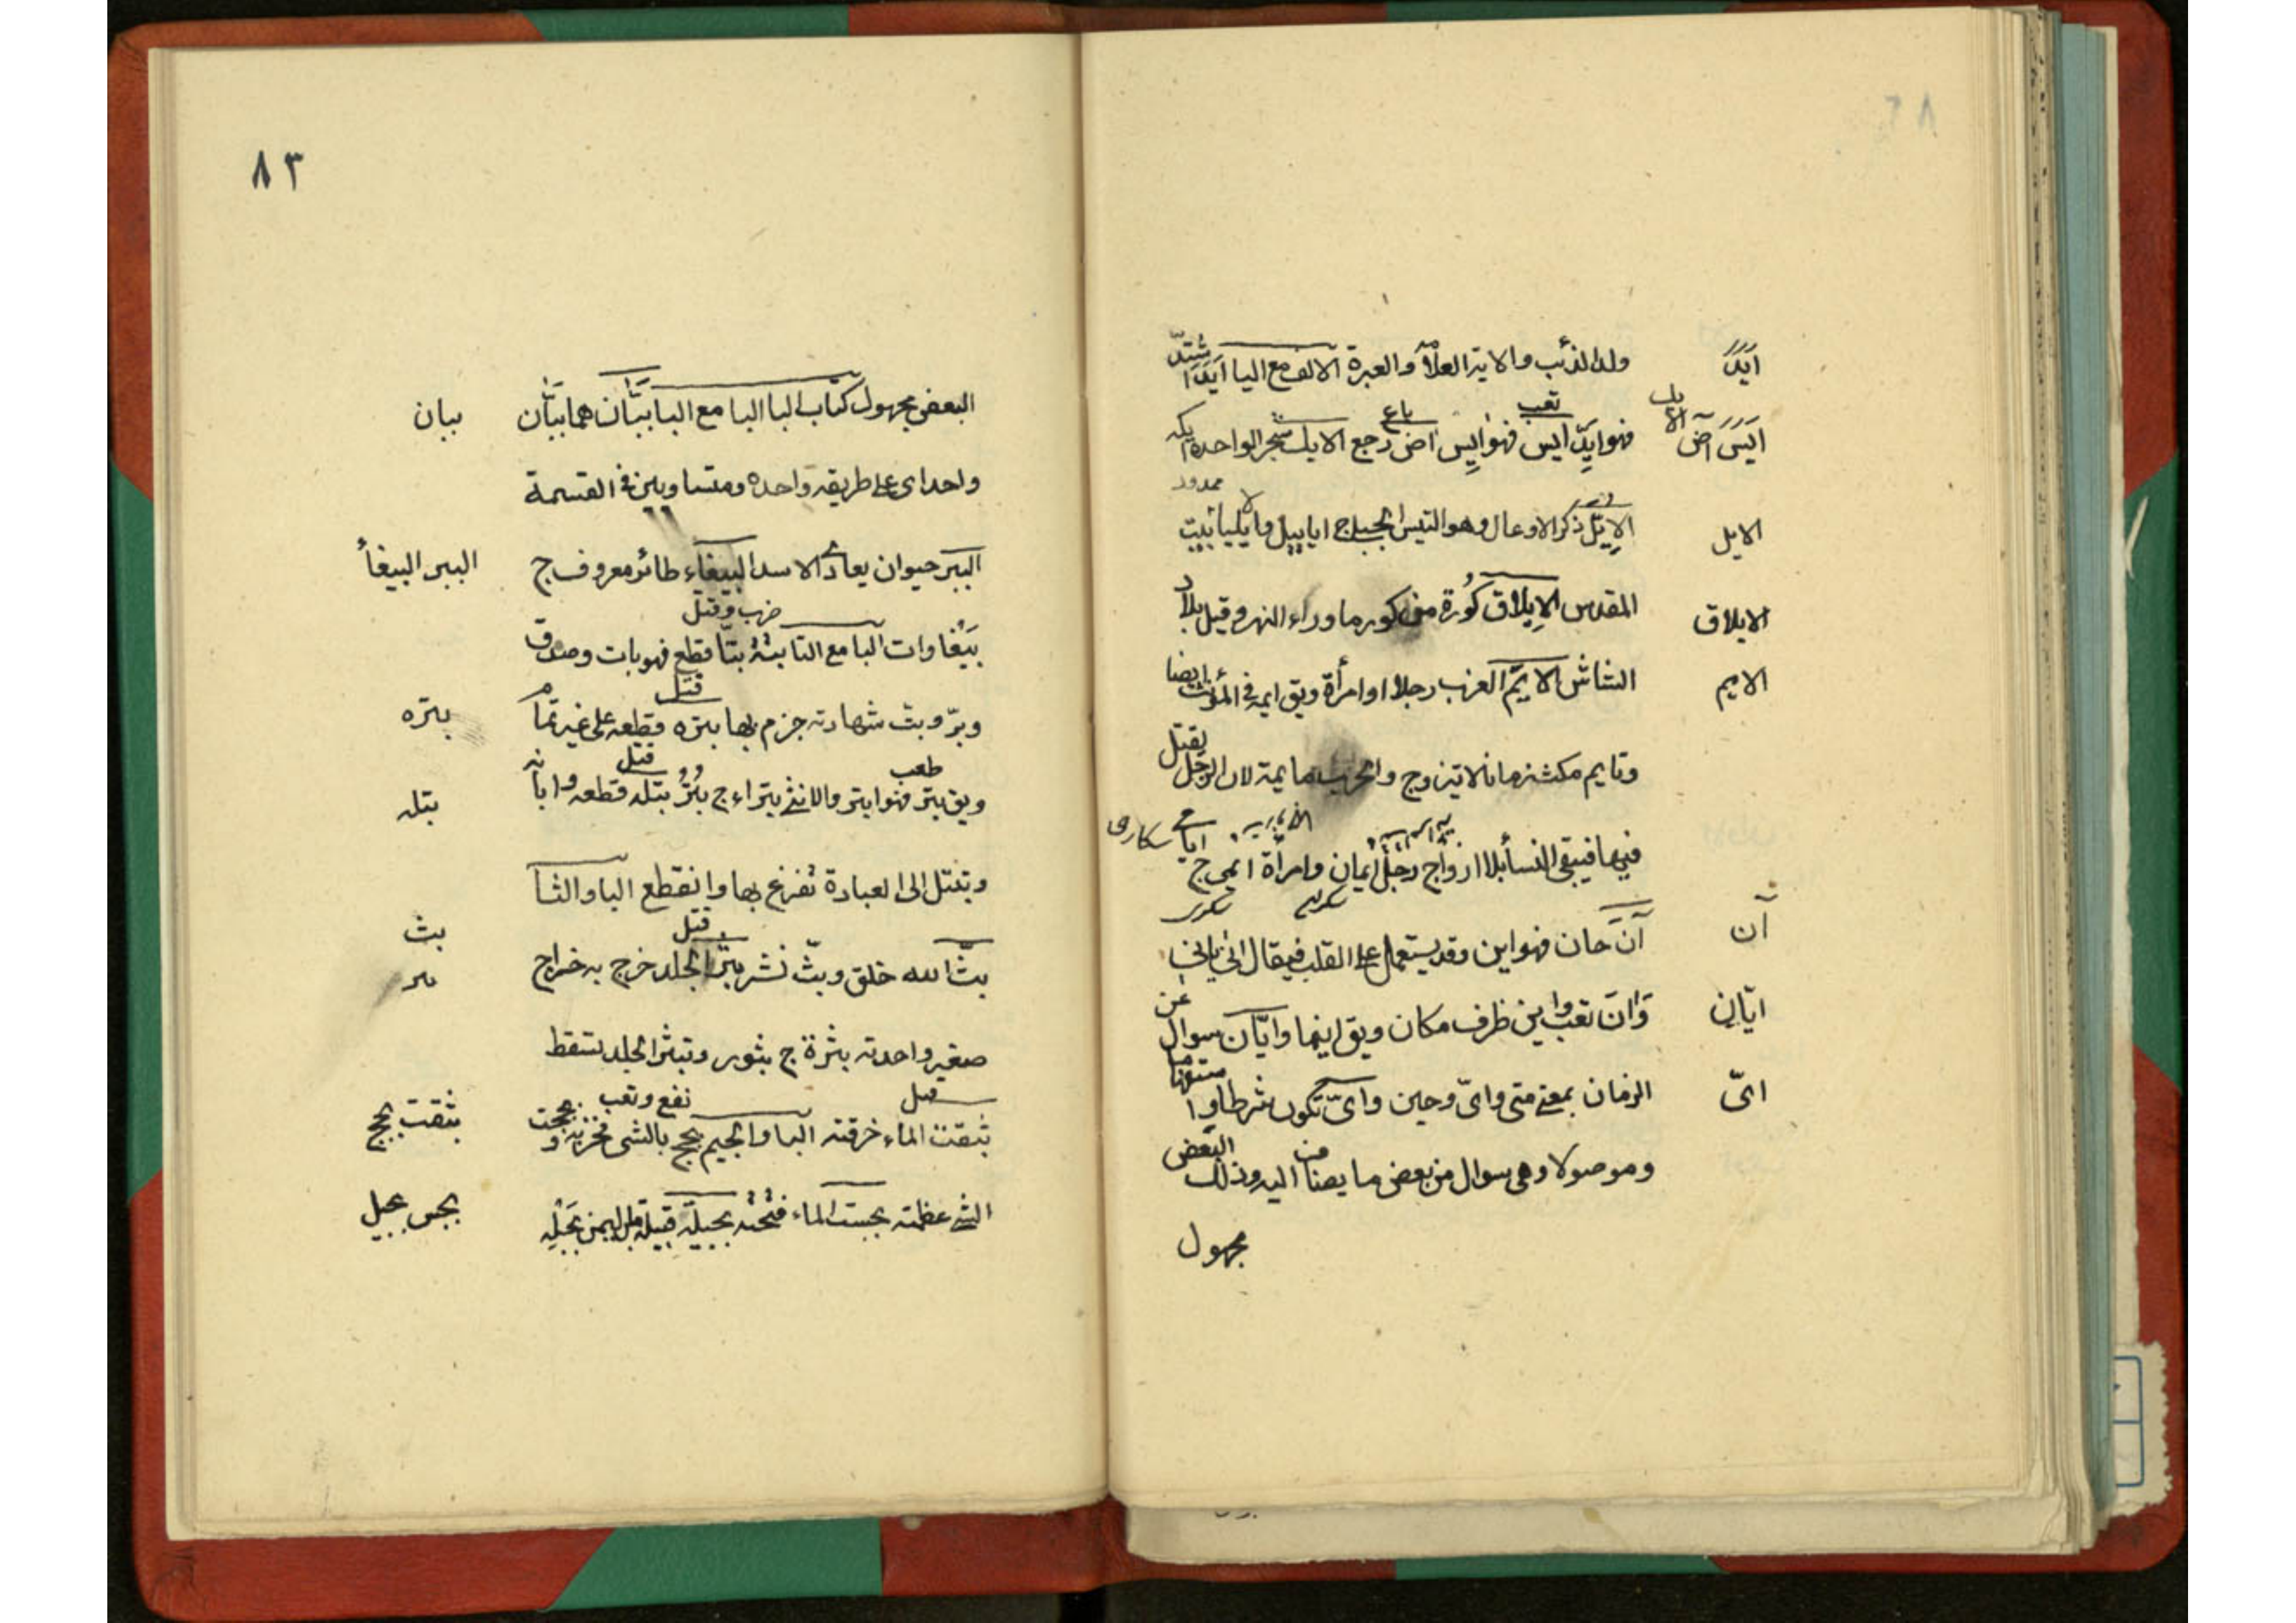 ايد
ولد الذئب والاية العلامة والعبرة الالف مع اليا ايد ايدا اشتد
ايس آض الايك
تعب باع
فهو ايد ايس فهو ايس اض رجع الايك شجر الواحدة ايكه
ممدود
الايل
الايل ذكر الاوعال وهو التيس الجبلى ج اياييل وايليا بيت
الايلاق
المقدس الايلاق كورة من كور ما وراء النهر وقيل بلاد
الايم
الشاش الايم العزب رجلا او امرأة ويق ايمة فى المؤنث ايضا
وتايم مكث زمانا لا يتزوج والحرب مايمة لان الرجل يقتل
فيها فيبقى النسأ بلا ازواج رجل ايمان وامرأة ايمى ج ايامى
سكران سكرى سكارى
آن
آن حان فهو اين وقد يستعمل على القلب فيقال انى يانى
ايّان
وان تعب واين ظرف مكان ويق اينما وايّان سوال عن
اىّ
الزمان بمعنى متى واىّ وحين واىّ تكون شرطا واستفهاما
وموصولا وهى سوال من بعض ما يضاف اليه وذلك البعض
مجهول
٨٣
بيان
البعض مجهول كتاب البا البا مع البا ببّان هما ببّان
واحد اى على طريقة واحده ومتساويين فى القسمة
الببر الببغأ
الببر حيوان يعادى الاسد الببغاء طائر معروف ج
ضرب وقتل
ببغاوات البا مع التا بته بتّا قطع فهو بات وصدق
قتل
بتره
وبرّ وبت شهادته جزم بها بتره قطعه على غير تمام
طعب قتل
بتله
ويق بتر فهو ابتر والانثى بتراء ج بتر بتله قطعه وابانه
وتبتل الى العبادة تفرغ بها وانقطع البا والثا
قتل
بث
بثر
بثّ الله خلق وبثّ نشر بثر الجلد خرج به خراج
صغير واحدته بثرة ج بثور وتبثر الجلد تنفط
قتل نفع وتعب
بثقت بجح
بثقت الماء خرقته البا والجيم بجح بالشى فخر به وبجحت
بجس بجيل
الشى عظمته بجست الماء فتحته بجيلة قبيلة من اليمن بجيلة